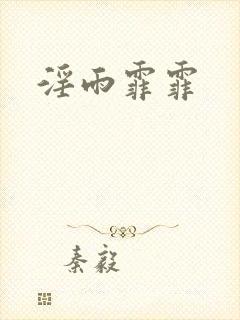 淫雨霏霏
秦毅